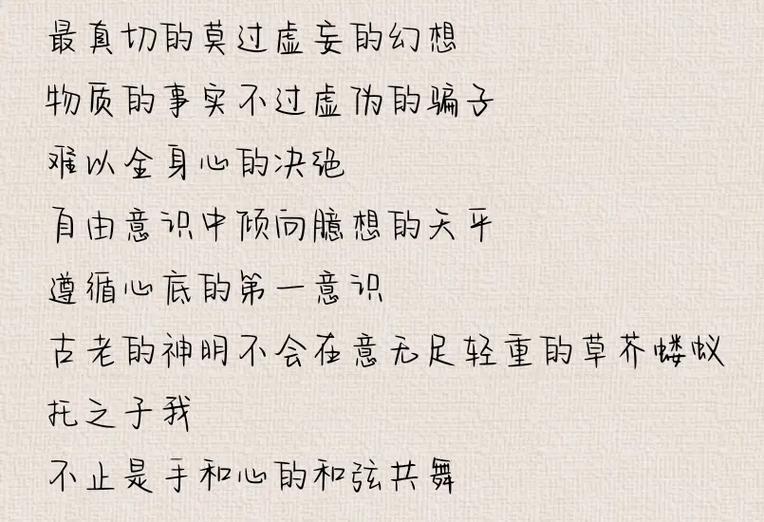 最真切的莫过虚妄的幻想
物质的事实不过虚伪的骗子
难以全身心的决绝
自由意识中倾向臆想的天平
遵循心底的第一意识
古老的神明不会在意无足轻重的草芥蝼蚁
托之于我
不止是手和心的和弦共舞